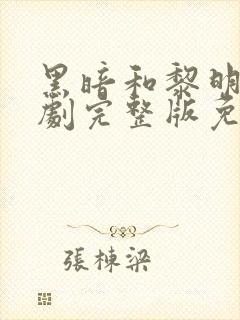 黑暗和黎明
劇完整版免
張棟梁